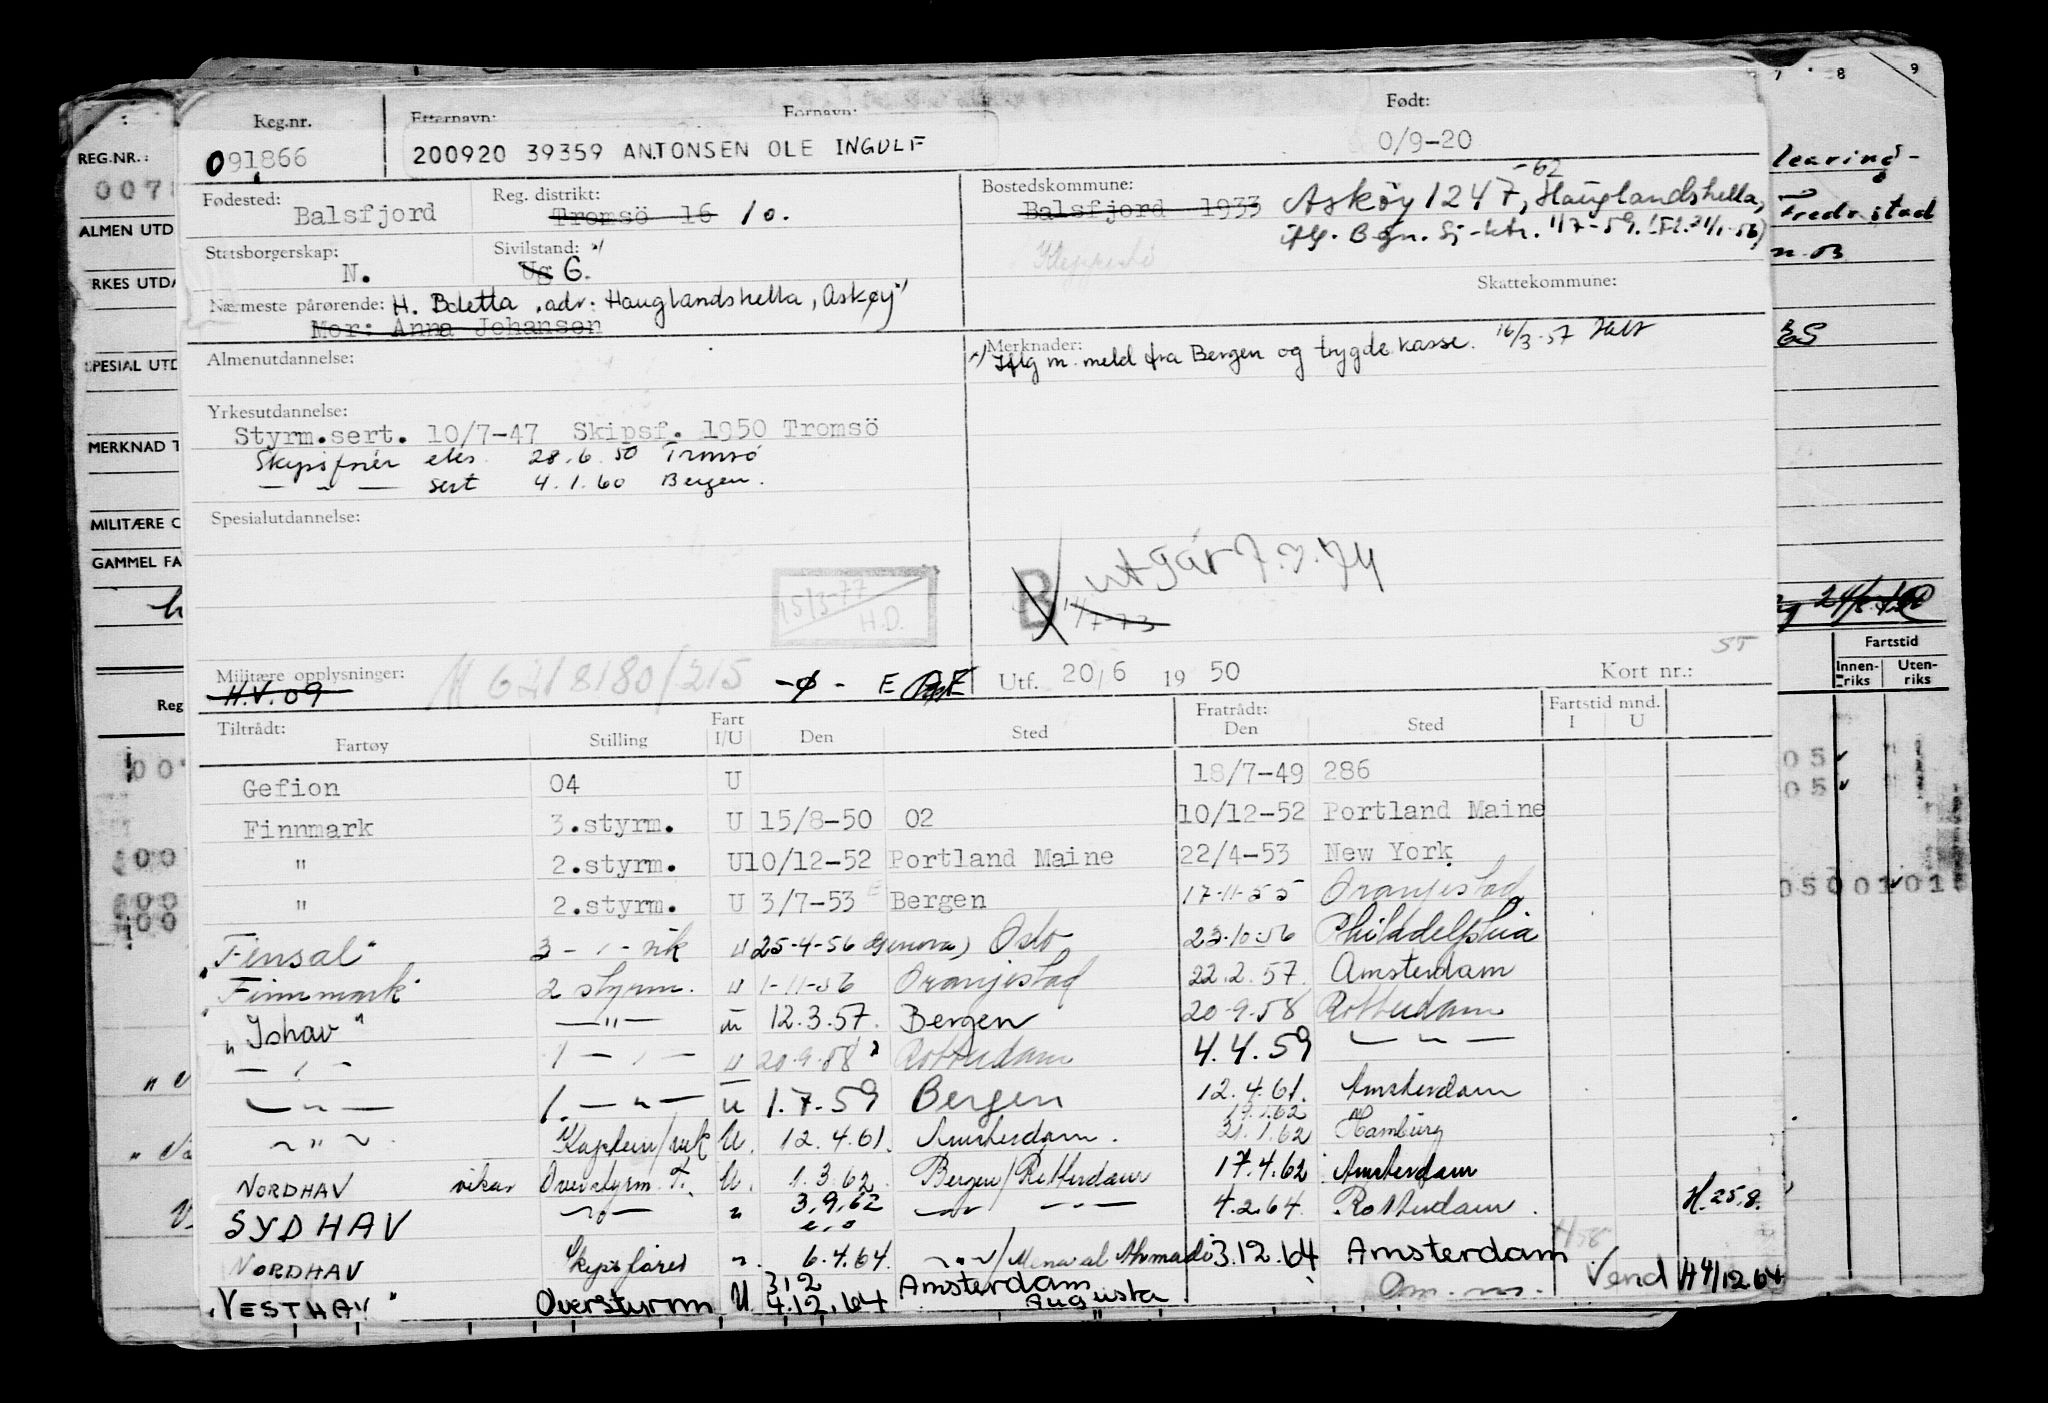 7 8 9
Reg.nr. Etternavn: Fornavn: Født:
REG.NR.:
091866 200920 39359 ANTONSEN OLE INGULF 0/9-20
Fødested: Balsfjord Reg. distrikt: Tromsö 16 10. Bostedskommune: Balsfjord 1933 Askøy 1247, Hauglandshella, -62
Fredrstad
ALMEN UTD
iflg. Bgn. Sj-ktr. 1/7-59.
Statsborgerskap: N. Sivilstand: x) Ug G. Kleppestö
RKES UTDA
Skattekommune:
Nærmeste pårørende: H. Boletta, adr: Hauglandshella, Askøy"
Mor: Anna Johansen
Almenutdannelse: Merknader:
x) Iflg m. meld fra Bergen og trygdekasse. 16/3-57
SPESIAL UTD
Yrkesutdannelse:
Styrm.sert. 10/7-47 Skipsf. 1950 Tromsö
MERKNAD T
Skipsfører eks. 28.6.50 Tromsö
— " — sert 4.1.60 Bergen.
Spesialutdannelse:
MILITÆRE C
GAMMEL FA
B utgår 7.7.74
15/3-77 H.D. 1/7-73
Fartstid
Innen-riks Uten-riks
Militære opplysninger: H.V.09 M 621/8180/215 -ø- E Utf. 20/6 19 50 Kort nr.: 55
Reg
Tiltrådt: Fartøy Stilling Fart I/U Den Sted Fratrådt: Den Sted Fartstid mnd. I U
Gefion 04 U 18/7-49 286
Finnmark 3.styrm. U 15/8-50 02 10/12-52 Portland Maine
" 2.styrm. U 10/12-52 Portland Maine 22/4-53 New York
" 2.styrm. U 3/7-53 Bergen 17-11-55 Oranjestad
"Fensal" 3 - " - vik U 25-4-56 (Genova) Oslo 23-10-56 Philadelphia
"Finnmark" 2 styrm. U 1-11-56 Oranjestad 22.2.57. Amsterdam
"Ishav" — " — U 12.3.57. Bergen 20-9-58 Rotterdam
— " — 1 — " — U 20-9-58 Rotterdam 4.4.59 — " —
— " — 1. — " — U 1.7.59 Bergen 12.4.61. Amsterdam
— " — Kaptein/vik U. 12.4.61. Amsterdam. 19.1.62 21.1.62 Hamburg
NORDHAV vikar Overstyrm. F. U. 1.3.62. Bergen/Rotterdam 17.4.62 Amsterdam
SYDHAV — " — " 3.9.62 — " — — " — 4.2.64. Rotterdam. H.25.8.
NORDHAV Skipsfører ". 6.4.64. — " —/Mena al Ahmadi 3.12.64 Amsterdam
"VESTHAV" Overstyrm U 3.12 4.12.64 Amsterdam Augusta Om. m. Vend H 4/12 64